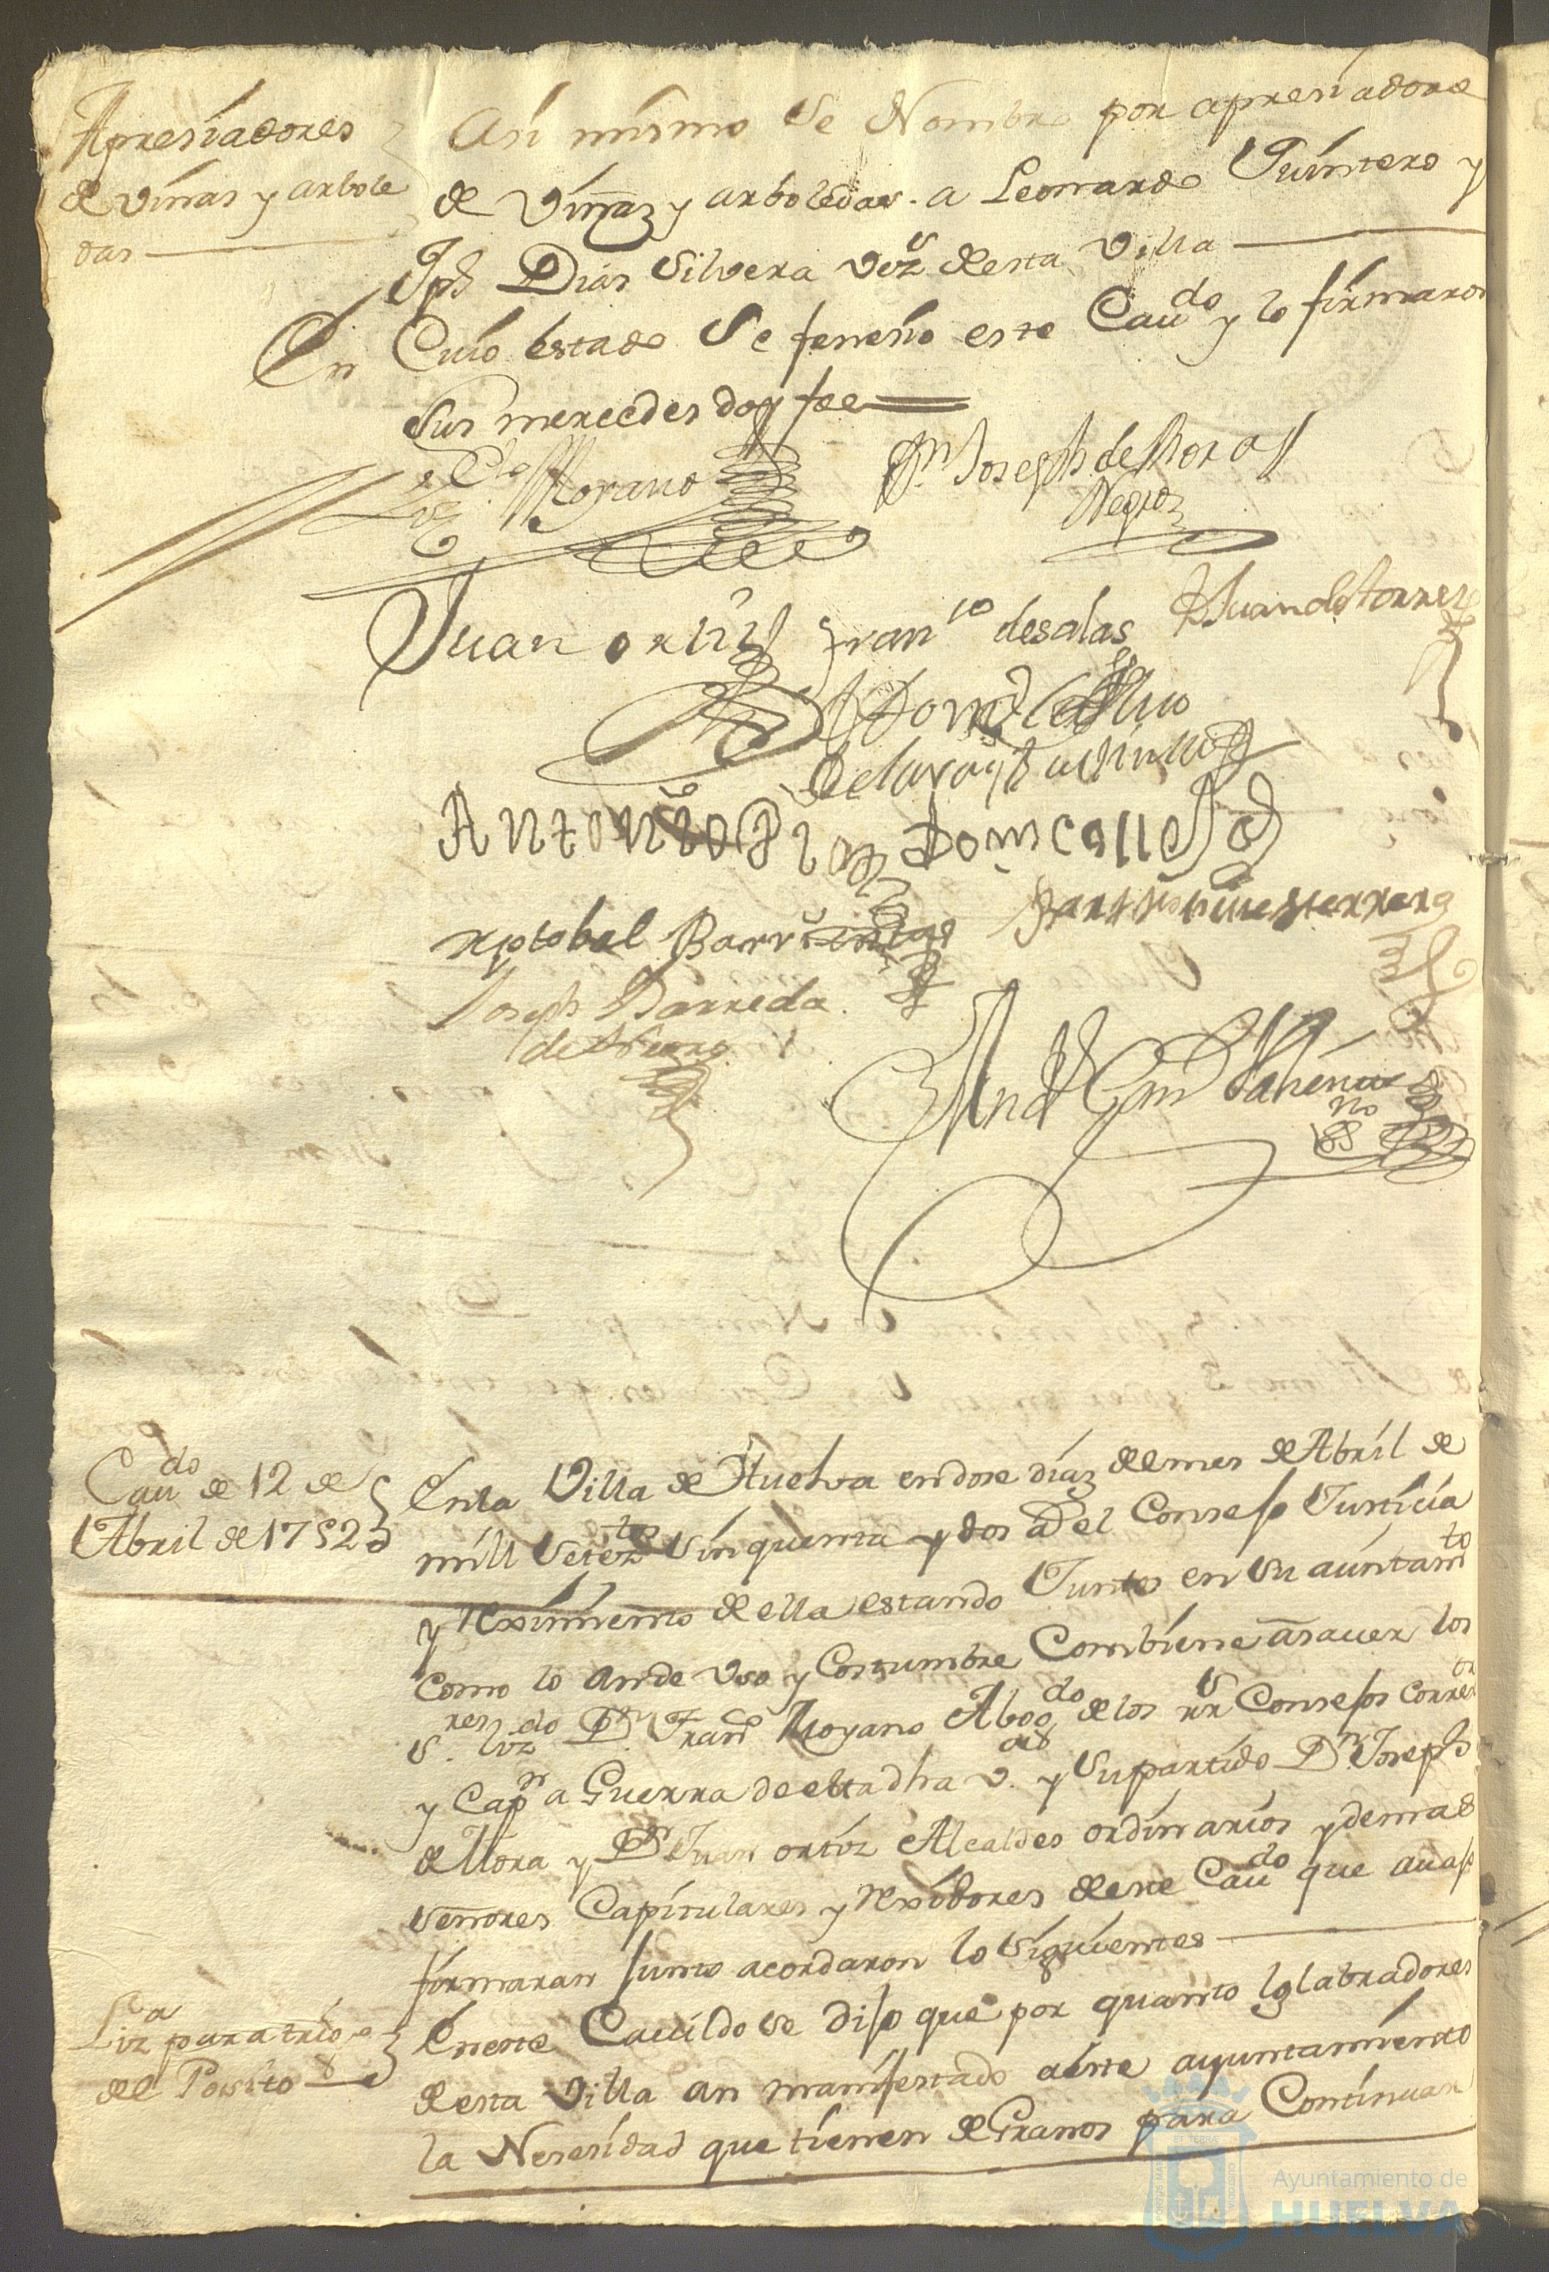 Apresiadores
de viñas y arbole
das
Asi mismo se Nombro por apresiadore
de Viñas y arboledas. a Leonardo Quintero y
Jph Dias Silvera vezs desta Villa
En Cuio estado se feneсio este Caudo y lo firmaron
sus mercedes doy fee
Lizdo Moyano
Dn Joseph de Mora
Negro
Juan ortiz
Franco de salas
Juan de torres
Domo
Antonio
Domo
xptobal Barr
Joseph Barreda
Caudo de 12 de
Abril de 1752
En la Villa de Huelva en dose dias del mes de Abril de
mill setezos sinquenta y dos as el Consejo Justicia
y reximiento de ella estando Juntos en su aiuntamto
como lo an de uso y Costumbre Combiene asauer los
Sres Lizdo Dn Franco Moyano Abogdo de los rrs Consejos Corror
y Capn a Guerra de esta dha va y su partido Dn Joseph
de Mora y Dn Juan ortiz Alcaldes ordinarios y demas
señores Capitulares y rexidores deste Caudo que auajo
firmaran Junto acordaron lo siguientes
Liza para trigo
del Posito
En este Cauildo se dijo que por quanto los labradores
desta Villa an manifestado a este ayuntamiento
la Nesesidad que tienen de Granos para Continuar
Ayuntamiento de
HUELVA